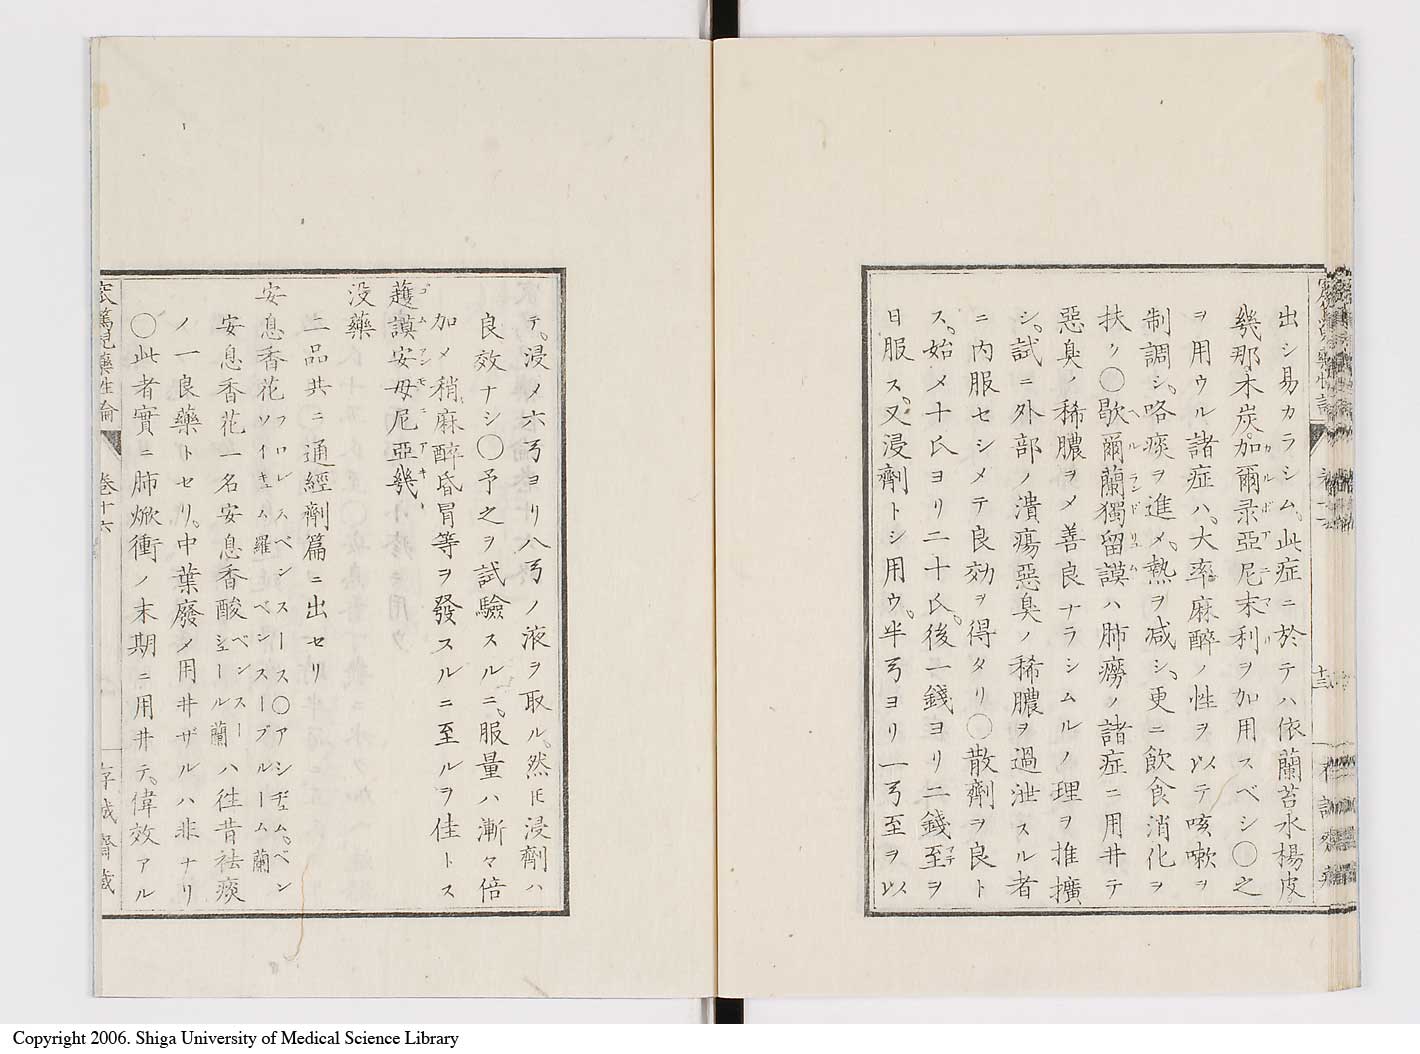 出シ易カラシム。此症ニ於テハ依蘭苔水楊皮
幾那木炭加爾录亞尼末利ヲ加用スベシ〇之
ヲ用ウル諸症ハ、大率麻醉ノ性ヲ以テ咳嗽ヲ
制調シ、咯痰ヲ進メ、熱ヲ减シ、更ニ飲食消化ヲ
扶ク〇歇爾蘭獨留謨ハ肺癆ノ諸症ニ用井テ
惡臭ノ稀膿ヲメ善良ナラシムルノ理ヲ推擴
シ、試ニ外部ノ潰瘍惡臭ノ稀膿ヲ過泄スル者
ニ内服セシメテ良効ヲ得タリ〇散劑ヲ良ト
ス。始メ十氏ヨリ二十氏。後一錢ヨリ二錢至ヲ
日服ス。又浸劑トシ用ウ。半弓ヨリ一弓至ヲ以
テ。浸メ六弓ヨリ八弓ノ液ヲ取ル。然𪜈浸劑ハ
良效ナシ〇予之ヲ試驗スルニ、服量ハ漸々倍
加メ稍麻醉昏冒等ヲ發スルニ至ルヲ佳トス
護謨安母尼亞幾 ゴムアンモニアキ
没藥
二品共ニ通經劑篇ニ出セリ
安息香花 フロレスベンスース〇アシヂュム。ベン
ソイキュム羅 ベンスーブルーム蘭
安息香花一名安息香酸 ベンスーシュール蘭 ハ徃昔祛痰
ノ一良藥トセリ。中葉廢メ用井ザルハ非ナリ
〇此者實ニ肺焮衝ノ末期ニ用井テ、偉效アル
篤兒藥性論
卷十六
十三
存誠齋藏